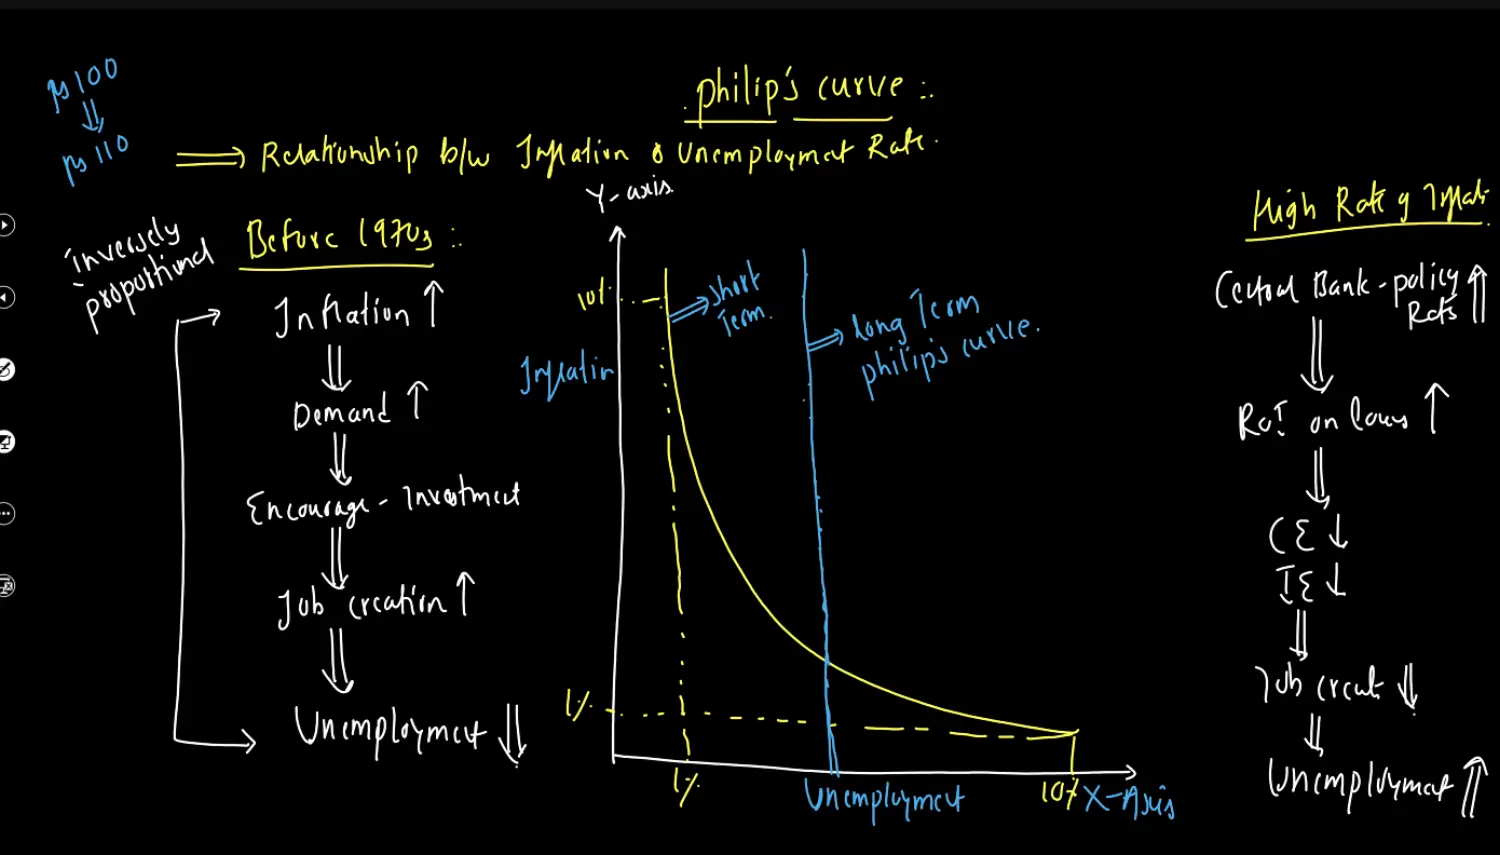 ₨100
₨110
philip's curve :.
Relationship b/w Inflation & Unemployment Rate.
inversely
proportional
Before 1970s :.
Inflation ↑
Demand ↑
Encourage - Investment
Job creation ↑
Unemployment ⇓
Y-axis
10%
Inflation
short
Term.
Long Term
philip's curve.
1%
1%
Unemployment
10%
X-Axis
High Rate of Inflati
Central Bank - policy
Rates ⇑
RoI on loans ↑
CE ↓
IE ↓
Job creati ⇓
Unemployment ⇑